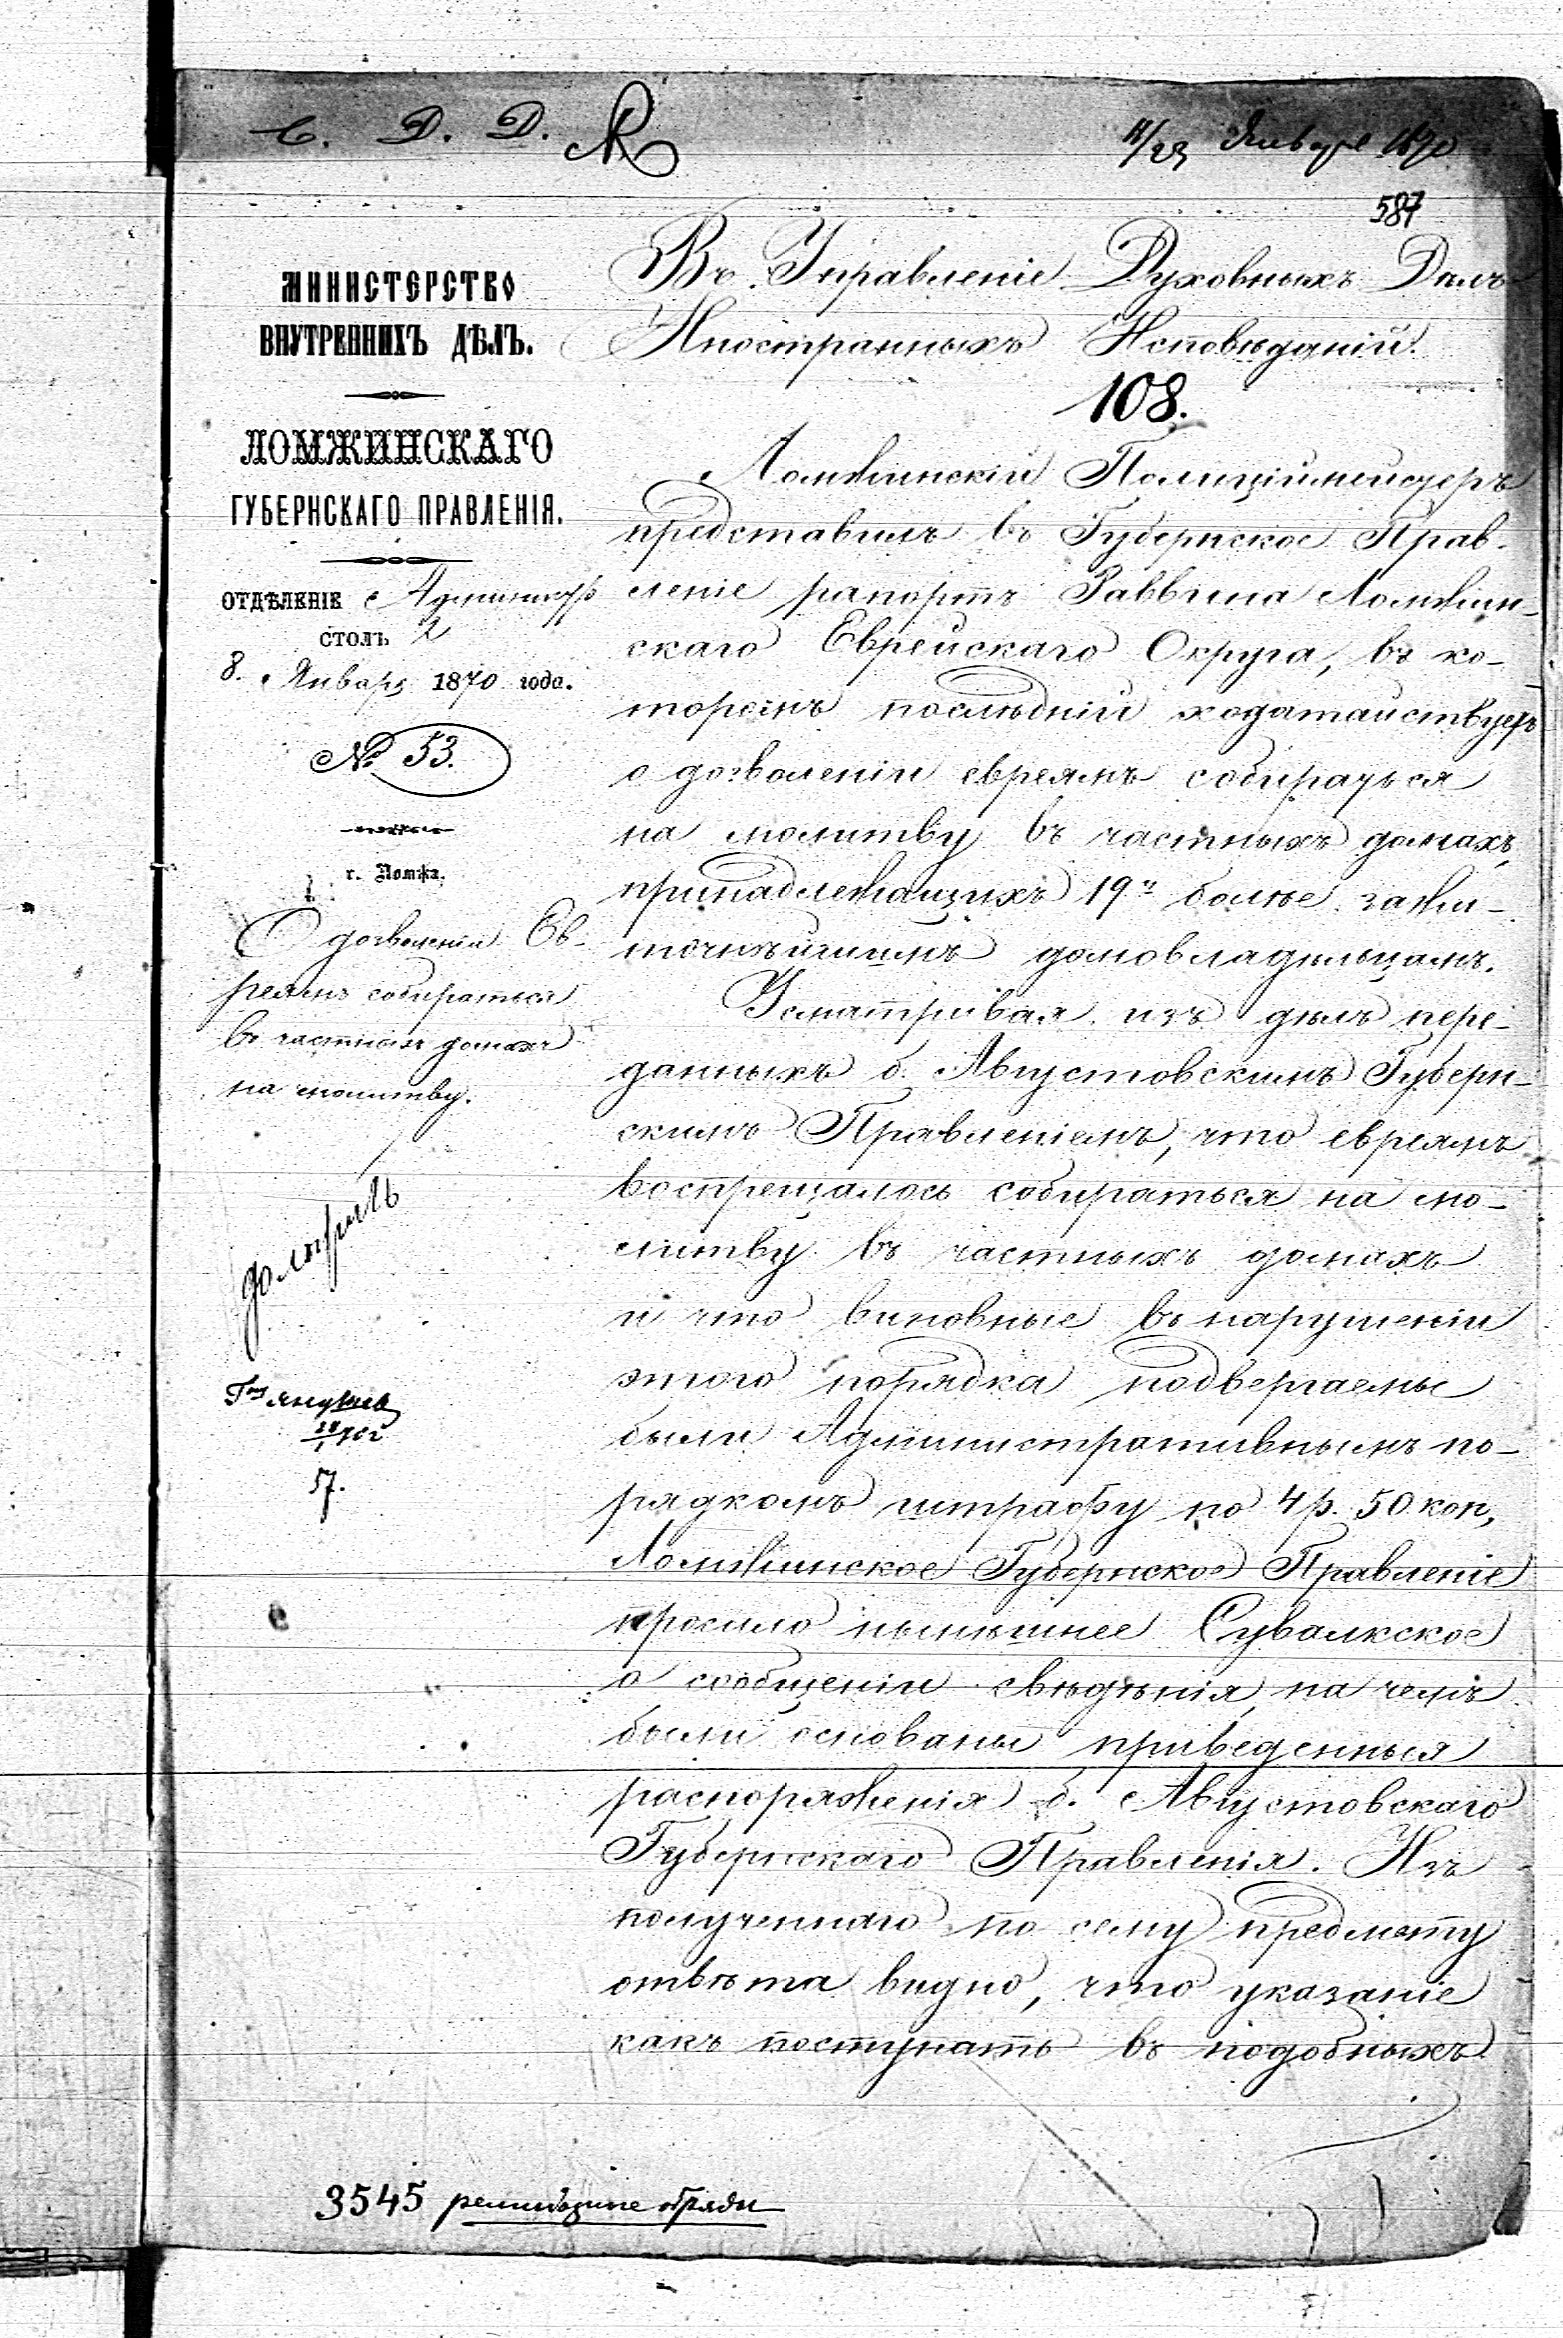 С. Д. Д.
11/23 Января 1870
587
МИНИСТЕРСТВО
ВНУТРЕННИХЪ ДѢЛЪ.
ЛОМЖИНСКАГО
ГУБЕРНСКАГО ПРАВЛЕНІЯ.
ОТДѢЛЕНІЕ Администр
СТОЛЪ 2
8. Января 1870 года.
№ 53.
г. Ломжа.
О дозволеніи Ев-
реямъ собираться
въ частныхъ домахъ
на молитву.
57.
Въ Управленіе Духовныхъ Дѣлъ
Иностранныхъ Исповѣданій.
108.
Ломжинскій Полиціймейстеръ
представилъ въ Губернское Прав-
леніе рапортъ Раввина Ломжин-
скаго Еврейскаго Округа, въ ко-
торомъ послѣдній ходатайствуетъ
о дозволеніи евреямъ собираться
на молитву въ частныхъ домахъ,
принадлежащихъ 19ти болѣе зажи-
точнѣйшимъ домовладѣльцамъ.
Усматривая изъ дѣлъ пере-
данныхъ б. Августовскимъ Губерн-
скимъ Правленіемъ, что евреямъ
воспрещалось собираться на мо-
литву въ частныхъ домахъ
и что виновные въ нарушеніи
этого порядка подвергаемы
были Административнымъ по-
рядкомъ штрафу по 4 р. 50 коп,
Ломжинское Губернское Правленіе
просило нынѣшнее Сувалкское
о сообщеніи свѣдѣнія, на чемъ
были основаны приведенныя
распоряженія б. Августовскаго
Губернскаго Правленія. Изъ
полученнаго по сему предмету
отвѣта видно, что указаніе
какъ поступать въ подобныхъ
3545 религіозные обряды